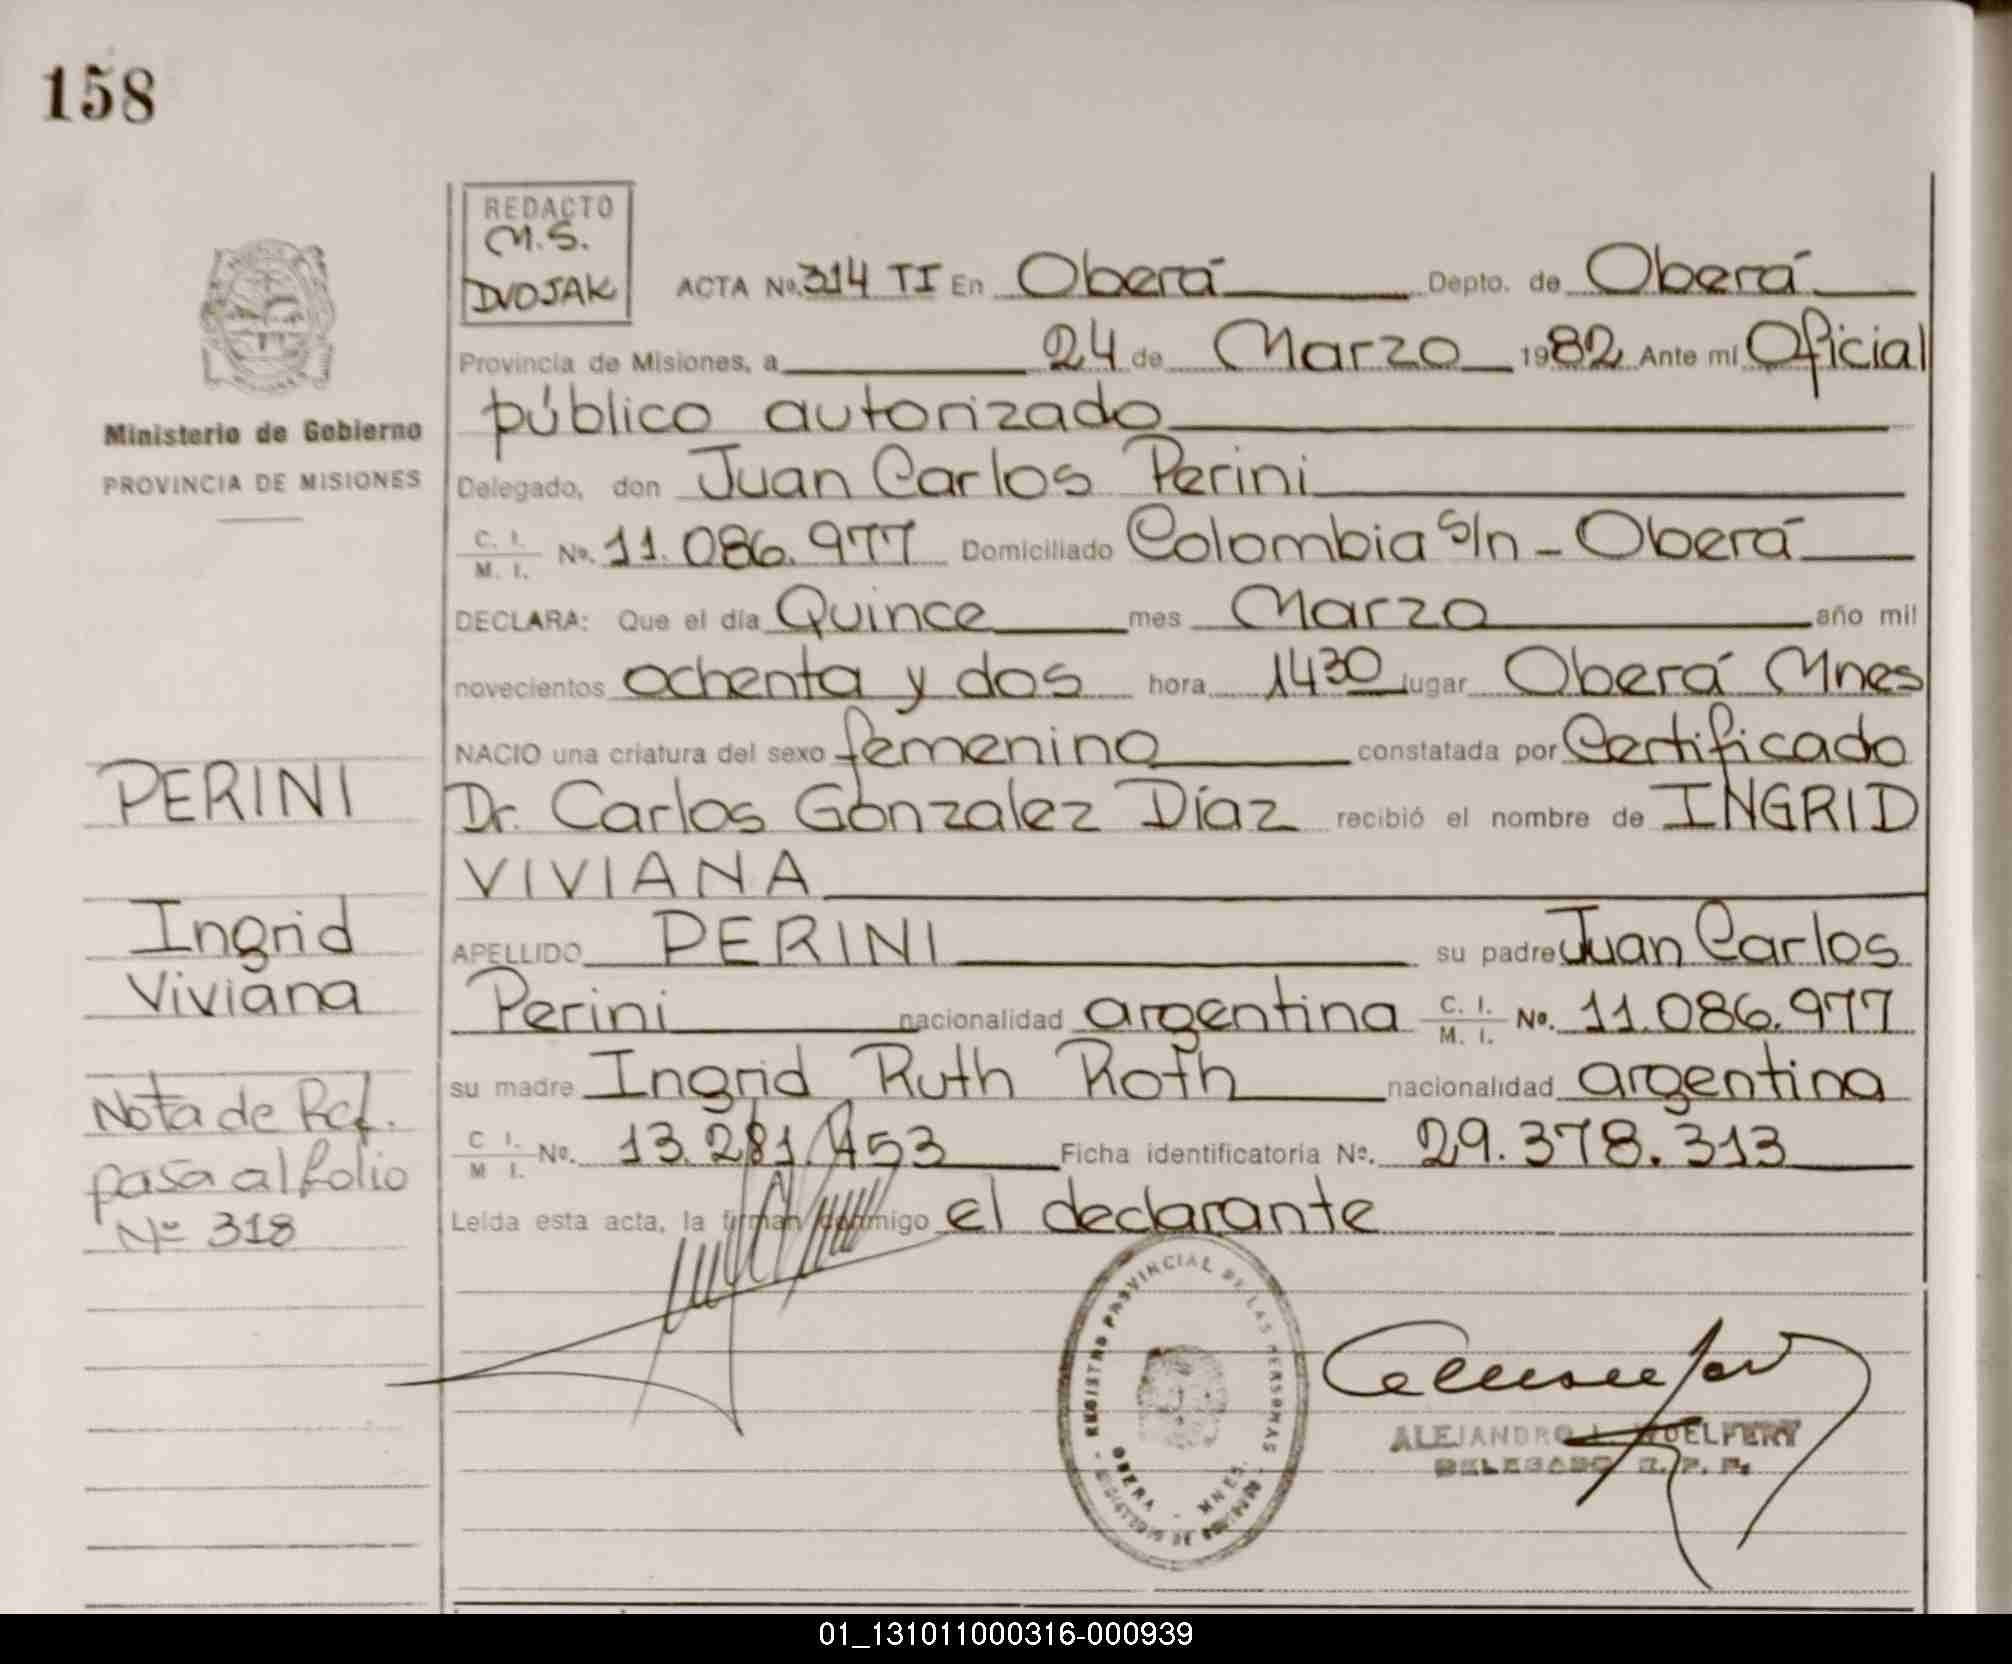 158
REDACTO
M.S.
DVOJAK
ACTA No. 314 TI En Oberá Depto. de Oberá
Provincia de Misiones, a 24 de Marzo 1982 Ante mí Oficial
público autorizado
Ministerio de Gobierno
PROVINCIA DE MISIONES
Delegado, don Juan Carlos Perini
C. I.
M. I. No. 11.086.977 Domiciliado Colombia s/n - Oberá
DECLARA: Que el día Quince mes Marzo año mil
novecientos ochenta y dos hora 14 30 lugar Oberá Mnes
NACIO una criatura del sexo femenino constatada por Certificado
Dr. Carlos Gonzalez Díaz recibió el nombre de INGRID
VIVIANA
APELLIDO PERINI su padre Juan Carlos
Perini nacionalidad argentina C. I.
M. I. No. 11.086.977
su madre Ingrid Ruth Roth nacionalidad argentina
C I.
M I. No. 13.281.453 Ficha identificatoria No. 29.378.313
Leída esta acta, la firman conmigo el declarante
PERINI
Ingrid
Viviana
Nota de Ref.
pasa al folio
Nº 318
REGISTRO PROVINCIAL DE LAS PERSONAS
OBERA - MNES.
ALEJANDRO
DELEGADO R. P. P.
01_131011000316-000939